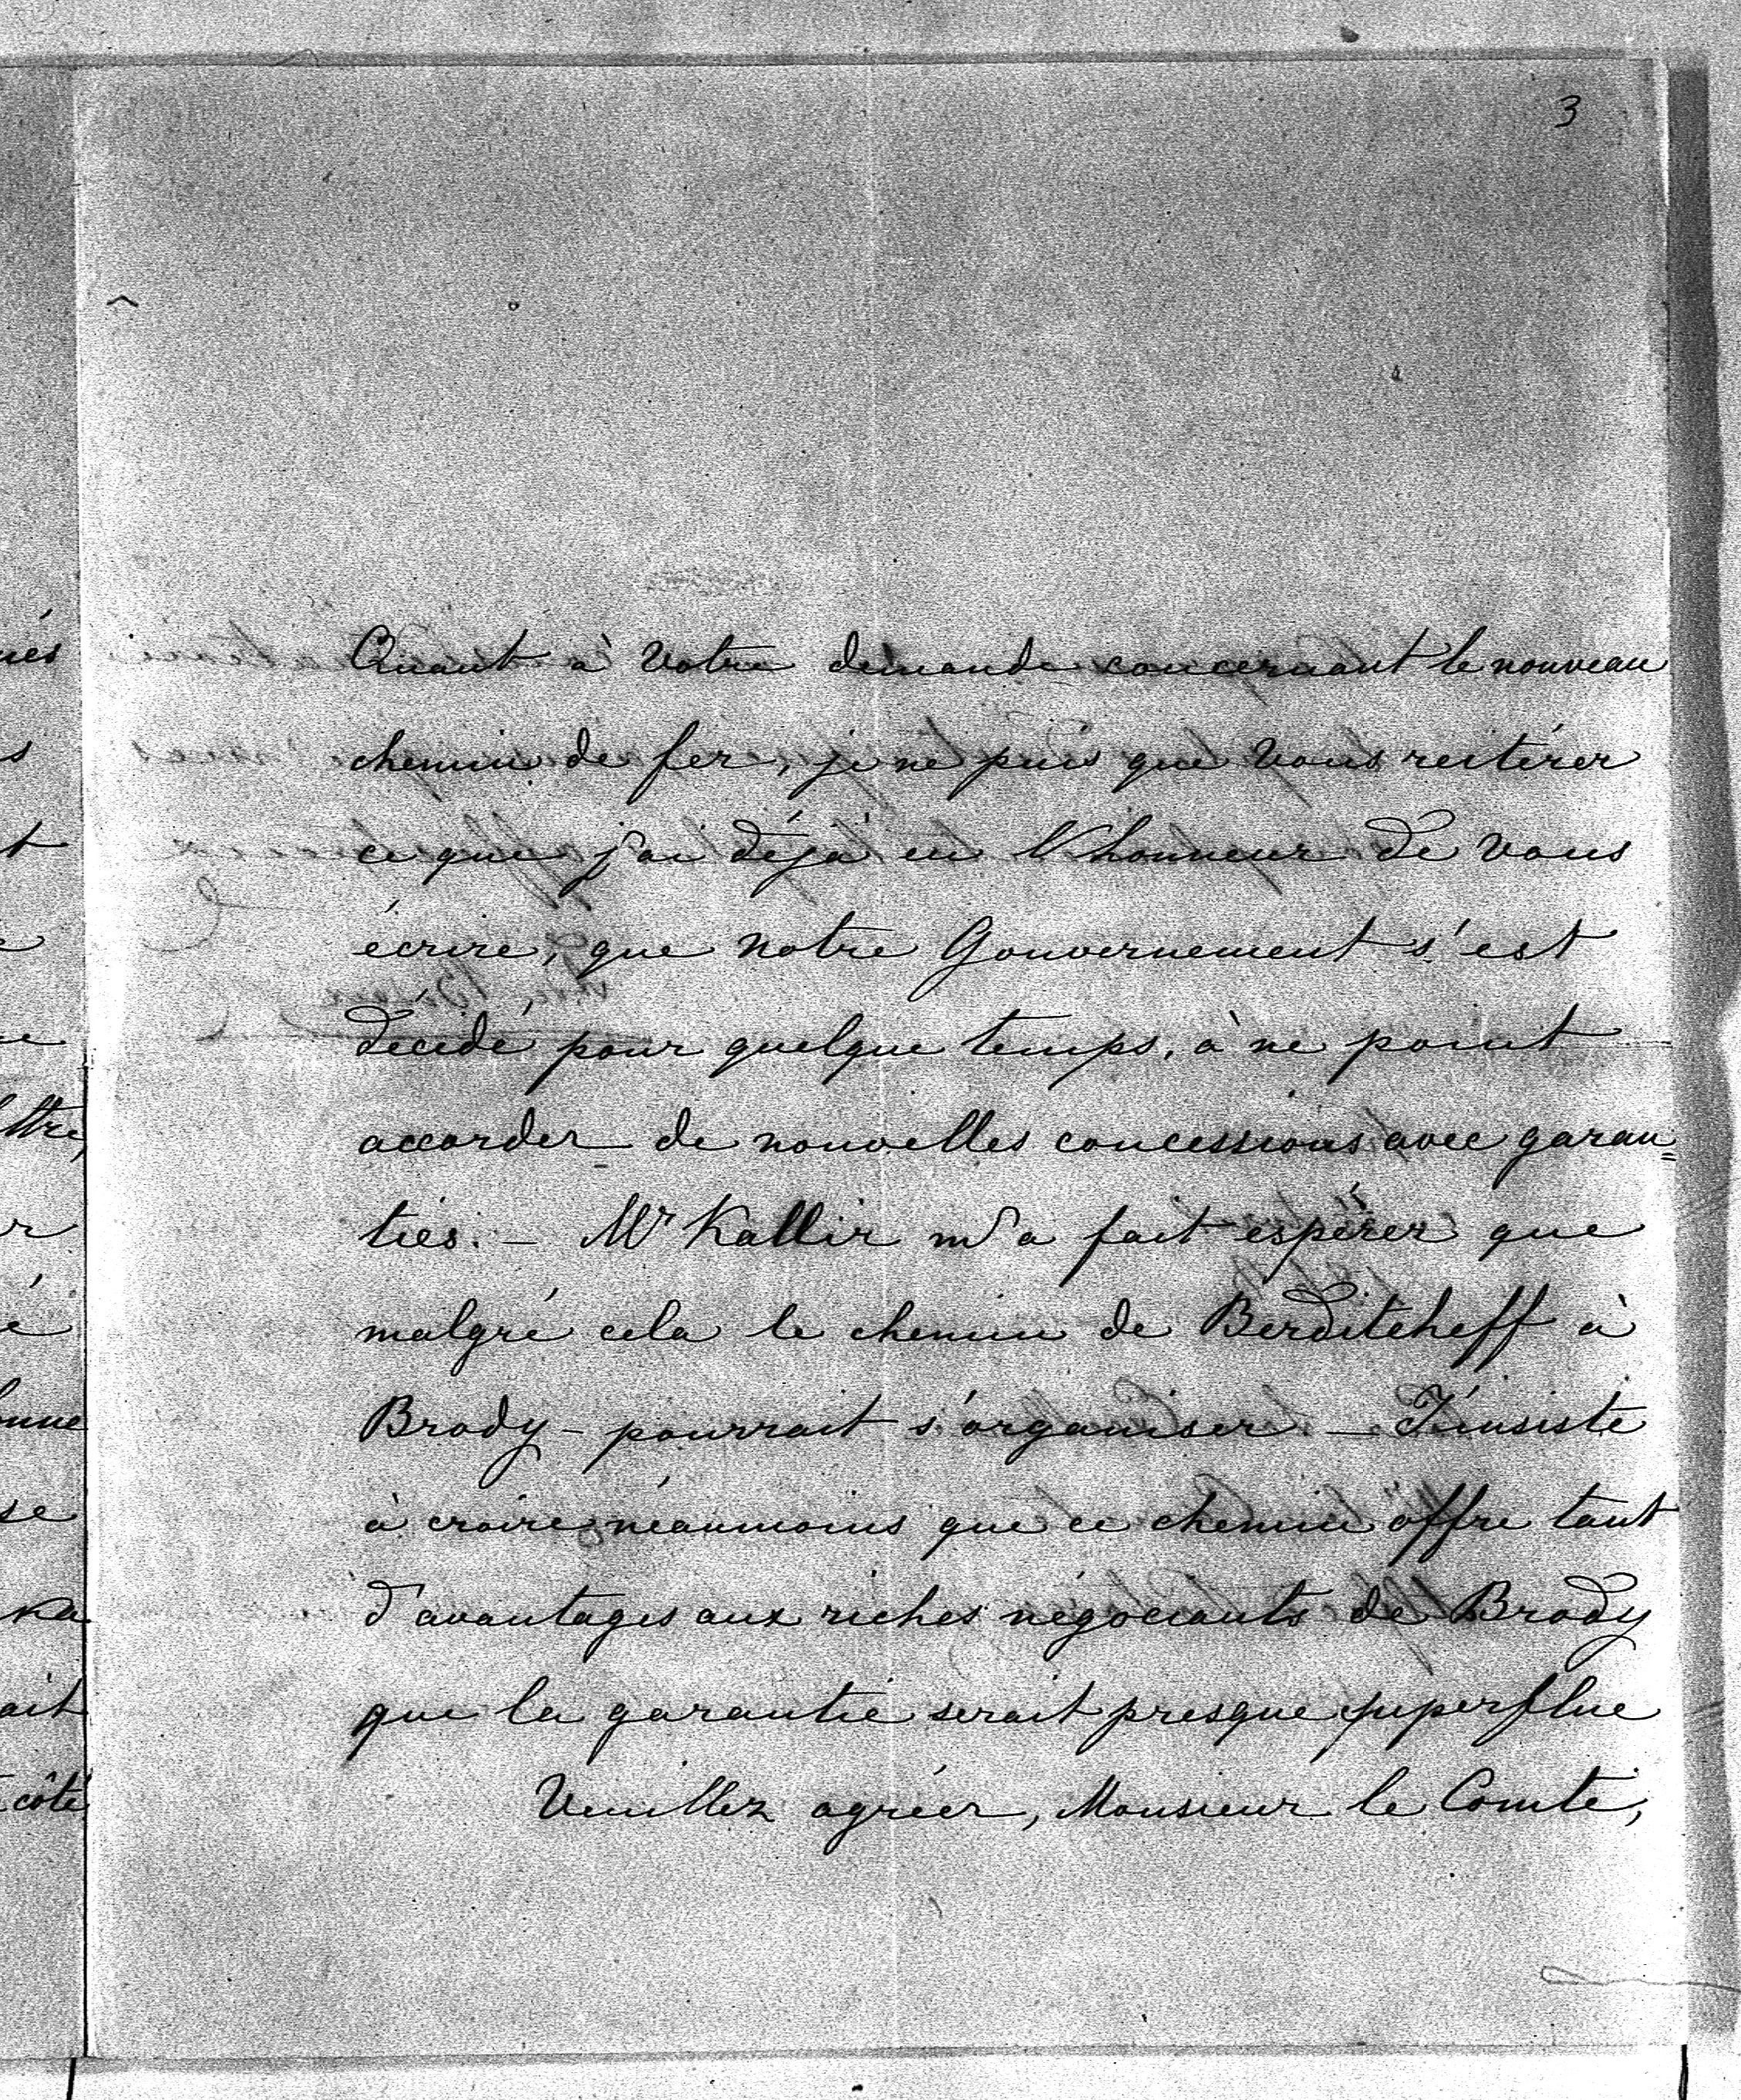 3
Quant à Votre demande concernant le nouveau
chemin de fer, je ne puis que Vous reitérer
ce que j'ai déjà eu l'honneur de vous
écrire, que notre Gouvernement s'est
décidé pour quelque temps, à ne point
accorder de nouvelles concessions avec garan=
ties. – Mr Kallir m'a fait espérer que
malgré cela le chemin de Berditcheff à
Brody – pourrait s'organiser. – J'insiste
à croire néaumoins que ce chemin offre tant
d'avantages aux riches négociants de Brody
que la garantie serait presque superflue
Veuillez agréer, Monsieur le Comte,